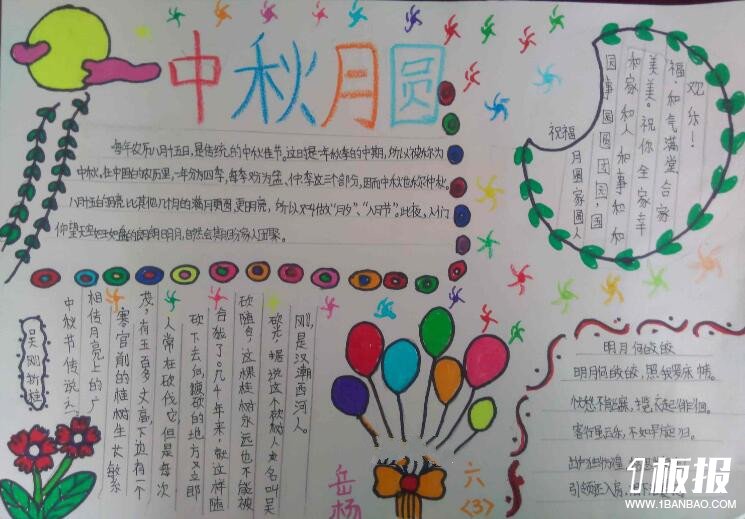 中秋月圆
每年农历八月十五日,是传统的中秋佳节。这时是一年秋季的中期,所以被称为
中秋。在中国的农历里,一年分为四季,每季又分为孟、仲、季三个部分,因而中秋也称仲秋。
八月十五的月亮比其他几个月的满月更圆,更明亮,所以又叫做“月夕”、“八月节”。此夜,人们
仰望天空如玉如盘的朗朗明月,自然会期盼家人团聚。
祝福
月圆家圆人
圆事圆圆团团圆,国
和家和人和事和和
美美。祝你全家幸
福、和气满堂、合家
欢乐!
吴刚折桂
中秋节传说之
相传月亮上的广
寒宫前的桂树生长繁
茂,有五百多丈高,下边有一个
人常在砍伐它,但是每次
砍下去,被砍的地方又立即
合拢了。几千年来,就这样随
砍随合,这棵桂树永远也不能被
砍光。据说这个砍树人名叫吴
刚,是汉朝西河人。
明月何皎皎
明月何皎皎,照我罗床帏。
忧愁不能寐,揽衣起徘徊。
客行虽云乐,不如早旋归。
出户独彷徨,
引领还入房,
岳杨
六
<3>
1板报
WWW.1BANBAO.COM